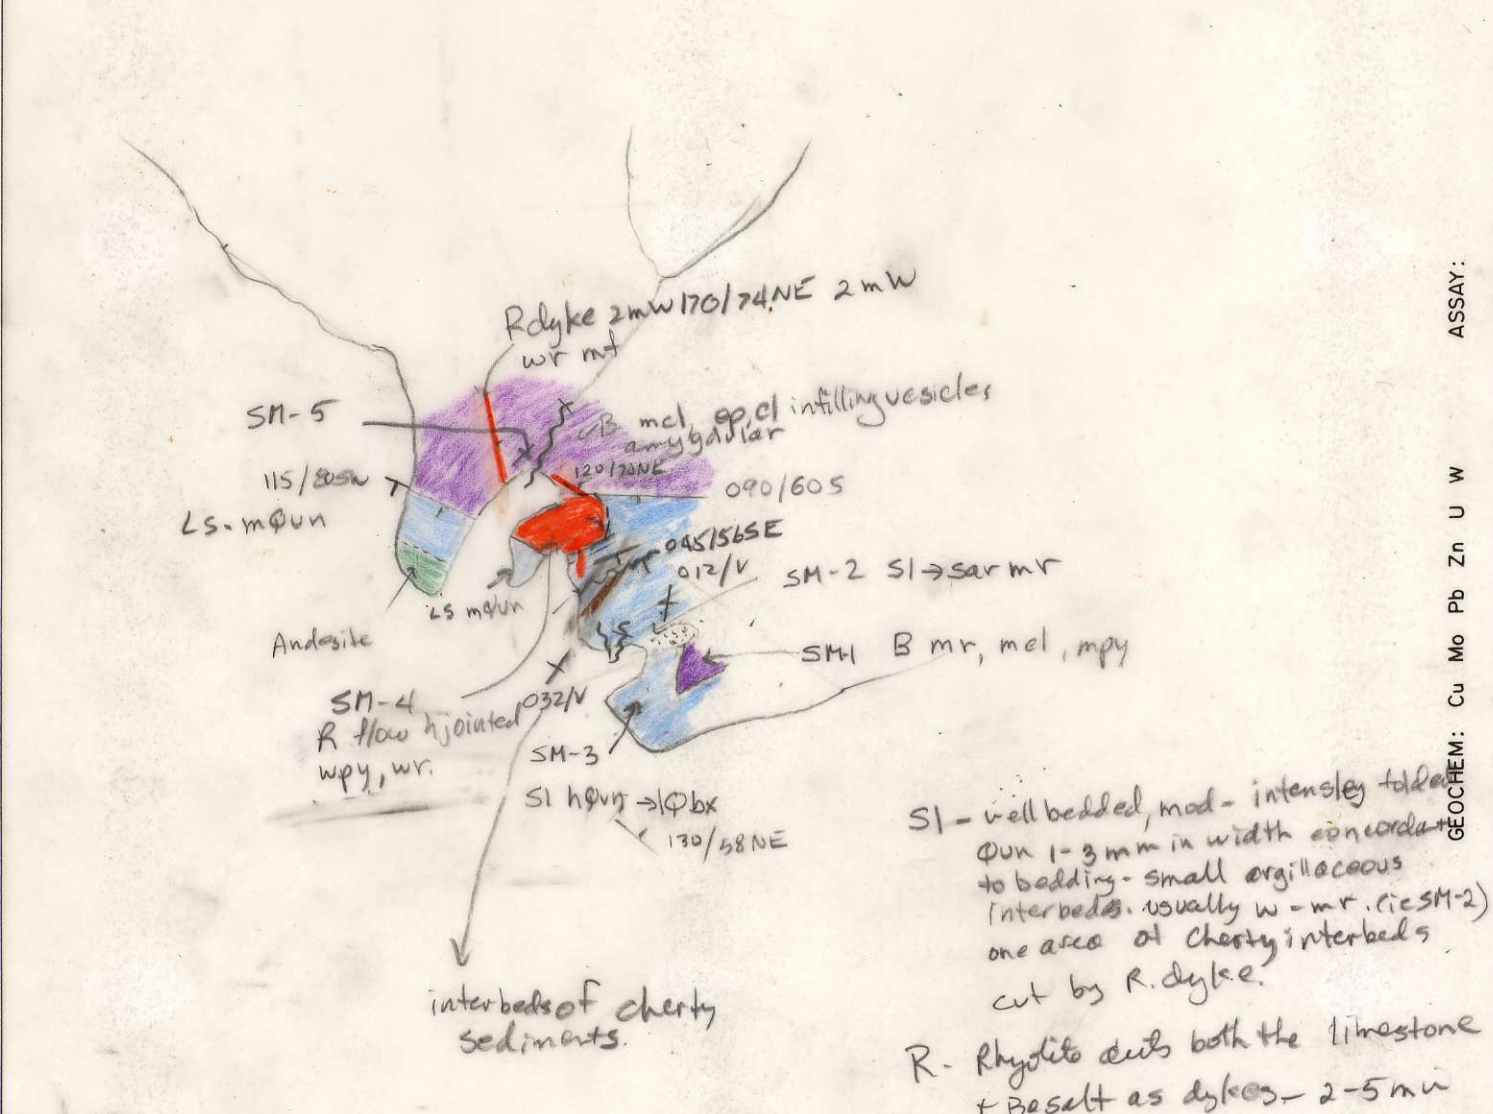 Rdyke 2mW 170/74NE 2mW
wr mt
SM-5
B mcl, ep, cl infilling vesicles
amygdular
120/70NE
115/80SW
090/60S
LS-mQvn
045/56SE
012/V
SM-2 Sl→sar mr
LS mQvn
Andesite
SM-1 B mr, mcl, mpy
SM-4
R flow hjointed
wpy, wr.
032/V
SM-3
Sl hQvn→lQbx
130/58NE
interbeds of cherty
sediments.
Sl - well bedded, mod - intensley folded
Qvn 1-3mm in width concordant
to bedding - small argillaceous
interbeds. usually w - mr. (ie SM-2)
one area of cherty interbeds
cut by R. dyke.
R. Rhyolite cuts both the limestone
+ Basalt as dykes - 2-5 m
ASSAY:
GEOCHEM: Cu Mo Pb Zn U W